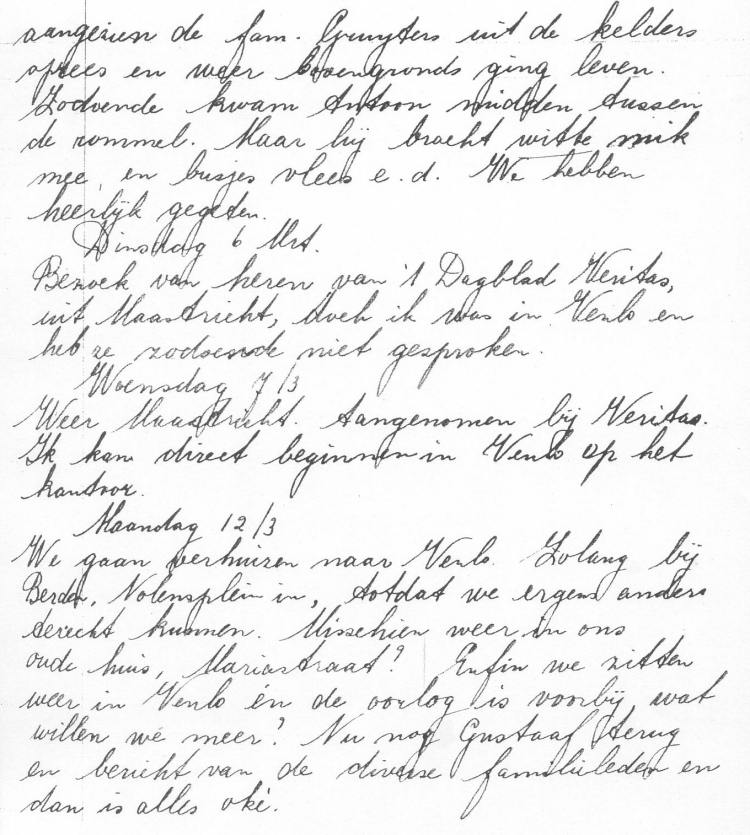 aangezien de fam. Gruyters uit de kelders
oprees en weer bovengronds ging leven.
Zodoende kwam Antoon midden tussen
de rommel. Maar hij bracht witte mik
mee, en busjes vlees e.d. We hebben
heerlijk gegeten.
Dinsdag 6 Mrt.
Bezoek van heren van 't Dagblad Veritas,
uit Maastricht, doch ik was in Venlo en
heb ze zodoende niet gesproken.
Woensdag 7/3
Weer Maastricht. Aangenomen bij Veritas.
Ik kan direct beginnen in Venlo op het
kantoor.
Maandag 12/3
We gaan verhuizen naar Venlo. Zolang bij
Berden, Nolensplein in, totdat we ergens anders
terecht kunnen. Misschien weer in ons
oude huis, Mariastraat? Enfin we zitten
weer in Venlo én de oorlog is voorbij, wat
willen we meer? Nu nog Gustaaf terug
en bericht van de diverse familieleden en
dan is alles oké.